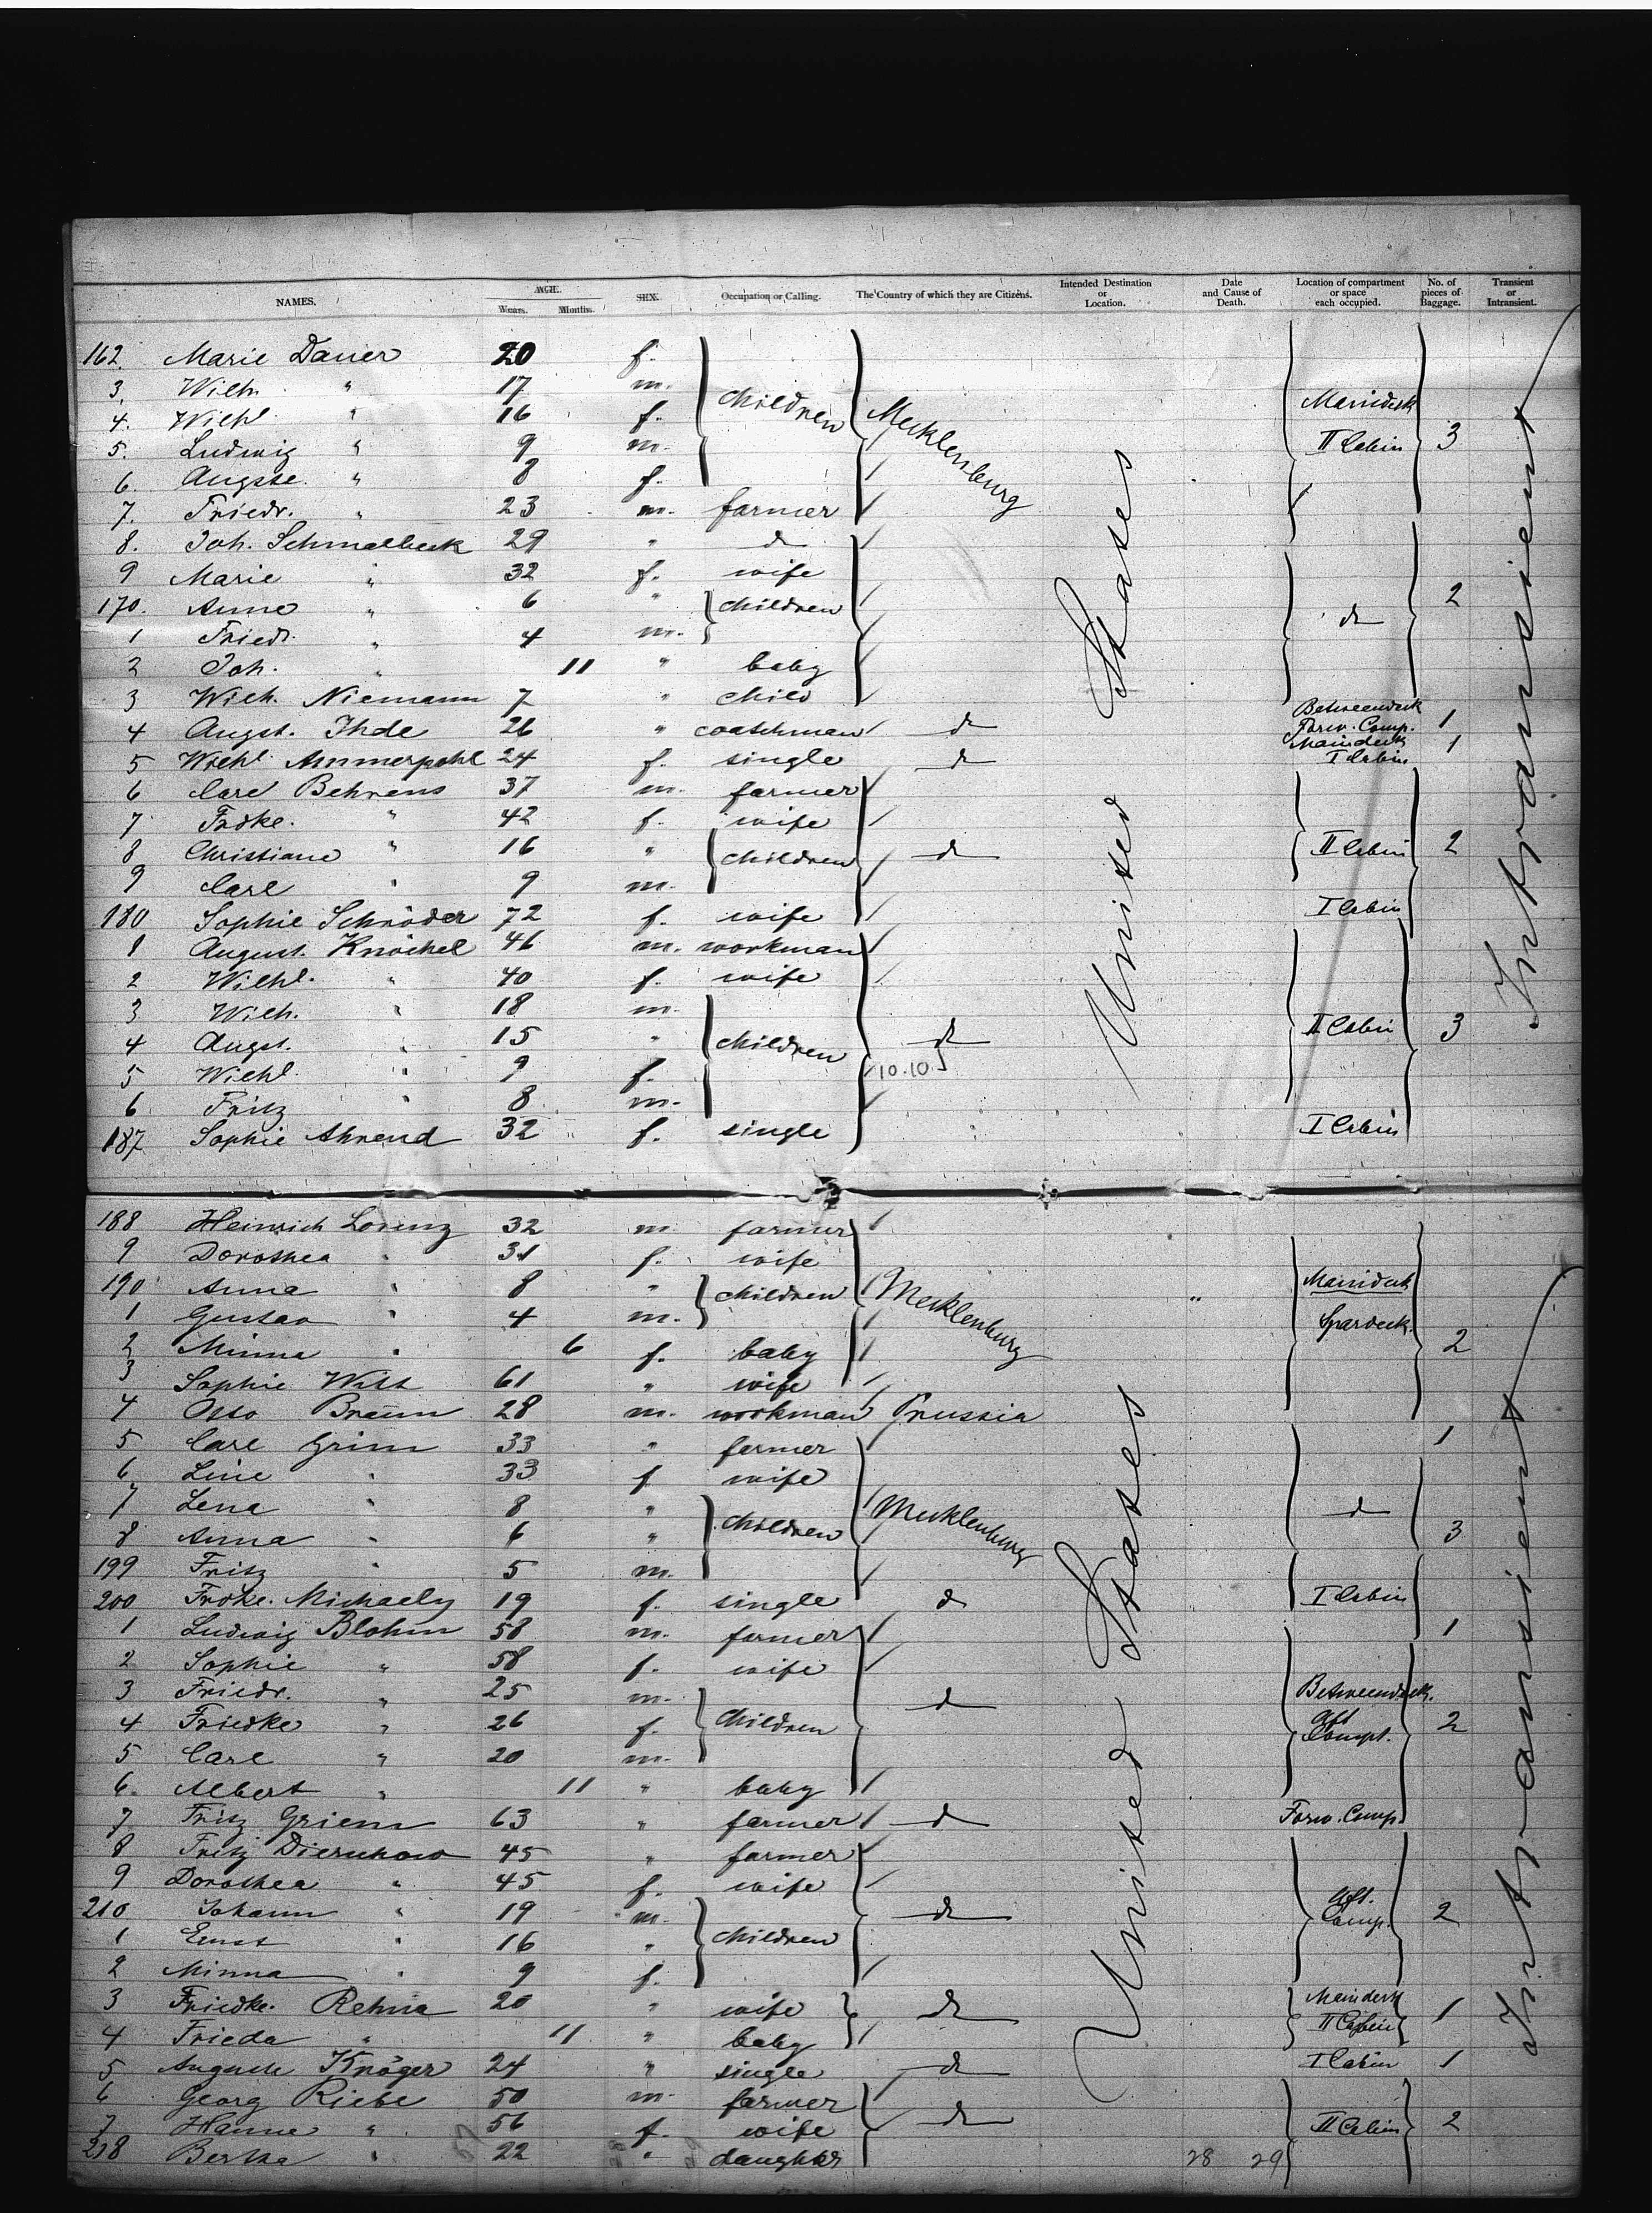 NAMES. AGE. Years. Months. SEX. Occupation or Calling. The Country of which they are Citizens. Intended Destination or Location. Date and Cause of Death. Location of compartment or space each occupied. No. of pieces of Baggage. Transient or Intransient.
162. Marie Dauer 20 f.
3. Wilh. " 17 m.
4. Wilhl. " 16 f. children Mecklenburg Maindeck
5. Ludwig " 9 m. II Cabin 3
6. Augste. " 8 f.
7. Friedr. " 23 m. farmer
8. Joh. Schmalbeck 29 " d
9 Marie " 32 f. wife
170. Anna " 6 " children d 2
1 Friedr. " 4 m.
2 Joh. " 11 " baby
3 Wilh. Niemann 7 " child
4 Augst. Ihde 26 " coatchman d Betweendeck Forw. Comp. 1
5 Wilhl. Ammerpohl 24 f. single d Maindeck I Cabin 1
6 Carl Behrens 37 m. farmer
7 Frdke. " 42 f. wife
8 Christiane " 16 " children d II Cabin 2
9 Carl " 9 m.
180 Sophie Schröder 72 f. wife I Cabin
1 August. Knöchel 46 m. workman
2 Wilhl. " 40 f. wife
3 Wilh. " 18 m.
4 Augst. " 15 " children d II Cabin 3
5 Wilhl. " 9 f. 10.10.
6 Fritz " 8 m.
187 Sophie Ahrend 32 f. single I Cabin
United States
Intransient
188 Heinrich Lorenz 32 m. farmer
9 Dorothea " 31 f. wife
190 Anna " 8 " children Mecklenburg Maindeck
1 Gustav " 4 m. Spardeck.
2 Minna " 6 f. baby 2
3 Sophie Witt 61 " wife
4 Otto Braun 28 m. workman Prussia
5 Carl Grim 33 " farmer 1
6 Line " 33 f wife
7 Lena " 8 " children Mecklenburg d
8 Anna " 6 " 3
199 Fritz " 5 m.
200 Frdke. Michaely 19 f. single d I Cabin
1 Ludwig Blohm 58 m. farmer 1
2 Sophie " 58 f. wife
3 Friedr. " 25 m. children d Betweendeck.
4 Friedke " 26 f. Aft Compt. 2
5 Carl " 20 m.
6. Albert " 11 " baby
7 Fritz Griem 63 " farmer d Forw. Comp
8 Fritz 45 " farmer
9 Dorothea " 45 f. wife
210 Johann " 19 m. children d Aft. Comp. 2
1 Ernst " 16 "
2 Minna " 9 f.
3 Friedke. Rehna 20 " wife d Maindeck II Cabin 1
4 Frieda " 11 " baby
5 Auguste Kröger 24 " single d I Cabin 1
6 Georg Riebe 50 m. farmer
7 Hanne " 56 f. wife d II Cabin 2
218 Bertha " 22 " daughter 28 29
United States
Intransient